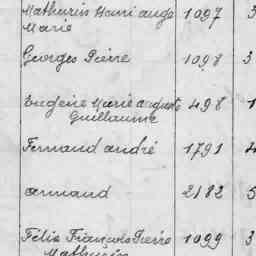 Mathurin Henri ange 1097 3
Marie
Georges Pierre 1098 3
Eugène Marie auguste 498 1
Guillaume
Fernand andré 1791 4
armand 2182 5
Félix François Pierre 1099 3
Mathurin